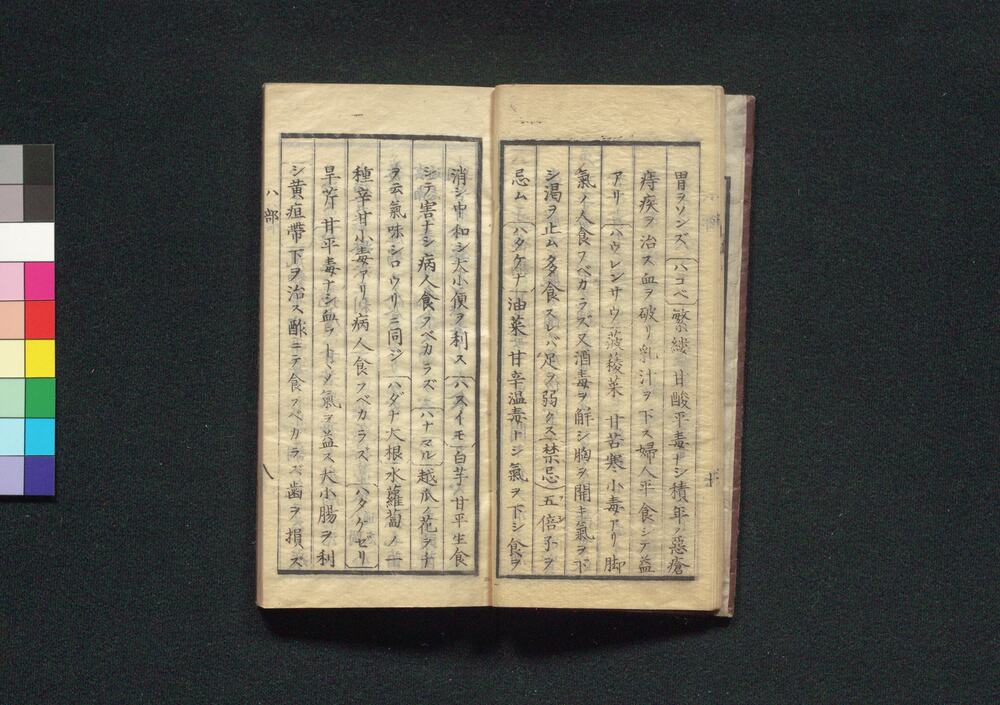 胃ヲソンズ ハコベ 繁縷 甘酸平毒ナシ積年ノ惡瘡
痔疾ヲ治ス血ヲ破リ乳汁ヲ下ス婦人平食シテ益
アリ ハウレンサウ 菠薐菜 甘苦寒小毒アリ脚
氣ノ人食フベカラズ又酒毒ヲ解シ胸ヲ開キ氣ヲ下
シ渴ヲ止ム多食スレバ足ヲ弱クス 禁忌 五倍子ヲ
忌ム ハタケナ 油菜 甘辛温毒ナシ氣ヲ下シ食ヲ
消シ中和シ大小便ヲ利ス ハスイモ 白芋 甘平生食
シテ害ナシ病人食フベカラズ ハナマル 越瓜ノ花ヲ
ヲ云氣味シロウリニ同ジ ハダナ大根 水蘿蔔ノ一
種辛甘小毒アリ病人食フベカラズ ハタケゼリ
旱芹 甘平毒ナシ血ヲトヾメ氣ヲ益ス大小腸ヲ利
シ黄疸帶下ヲ治ス酢ニテ食フベカラズ齒ヲ損ズ
ハ部
八